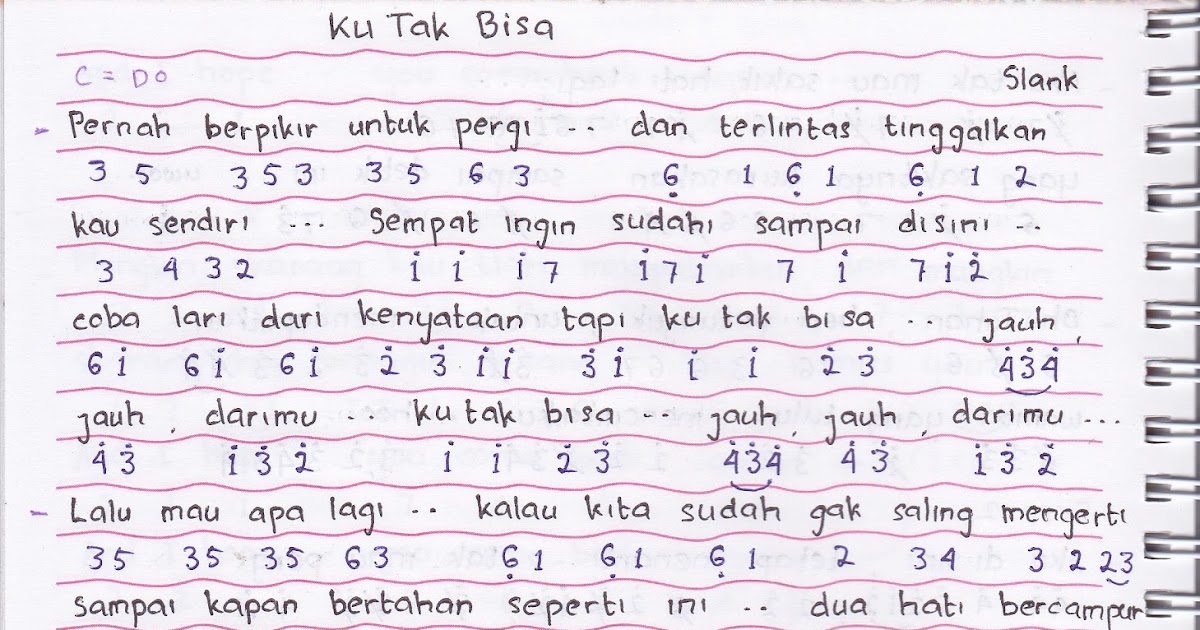 Ku Tak Bisa
C = DO Slank
- Pernah berpikir untuk pergi .. dan terlintas tinggalkan
3 5 3 5 3 3 5 6 3 6̣ 1 6̣ 1 6̣ 1 2
kau sendiri ... Sempat ingin sudahi sampai disini ..
3 4 3 2 1̇ 1̇ 1̇ 7 1̇ 7 1̇ 7 1̇ 7 1̇ 2̇
coba lari dari kenyataan tapi ku tak bisa .. jauh,
6 1̇ 6 1̇ 6 1̇ 2̇ 3̇ 1̇ 1̇ 3̇ 1̇ 1̇ 1̇ 2̇ 3̇ 4̇3̇4̇
jauh, darimu ... ku tak bisa ... jauh, jauh, darimu ...
4̇ 3̇ 1̇ 3̇ 2̇ 1̇ 1̇ 2̇ 3̇ 4̇3̇4̇ 4̇ 3̇ 1̇ 3̇ 2̇
- Lalu mau apa lagi .. kalau kita sudah gak saling mengerti
3 5 3 5 3 5 6 3 6̣ 1 6̣ 1 6̣ 1 2 3 4 3 2 23
sampai kapan bertahan seperti ini .. dua hati bercampur